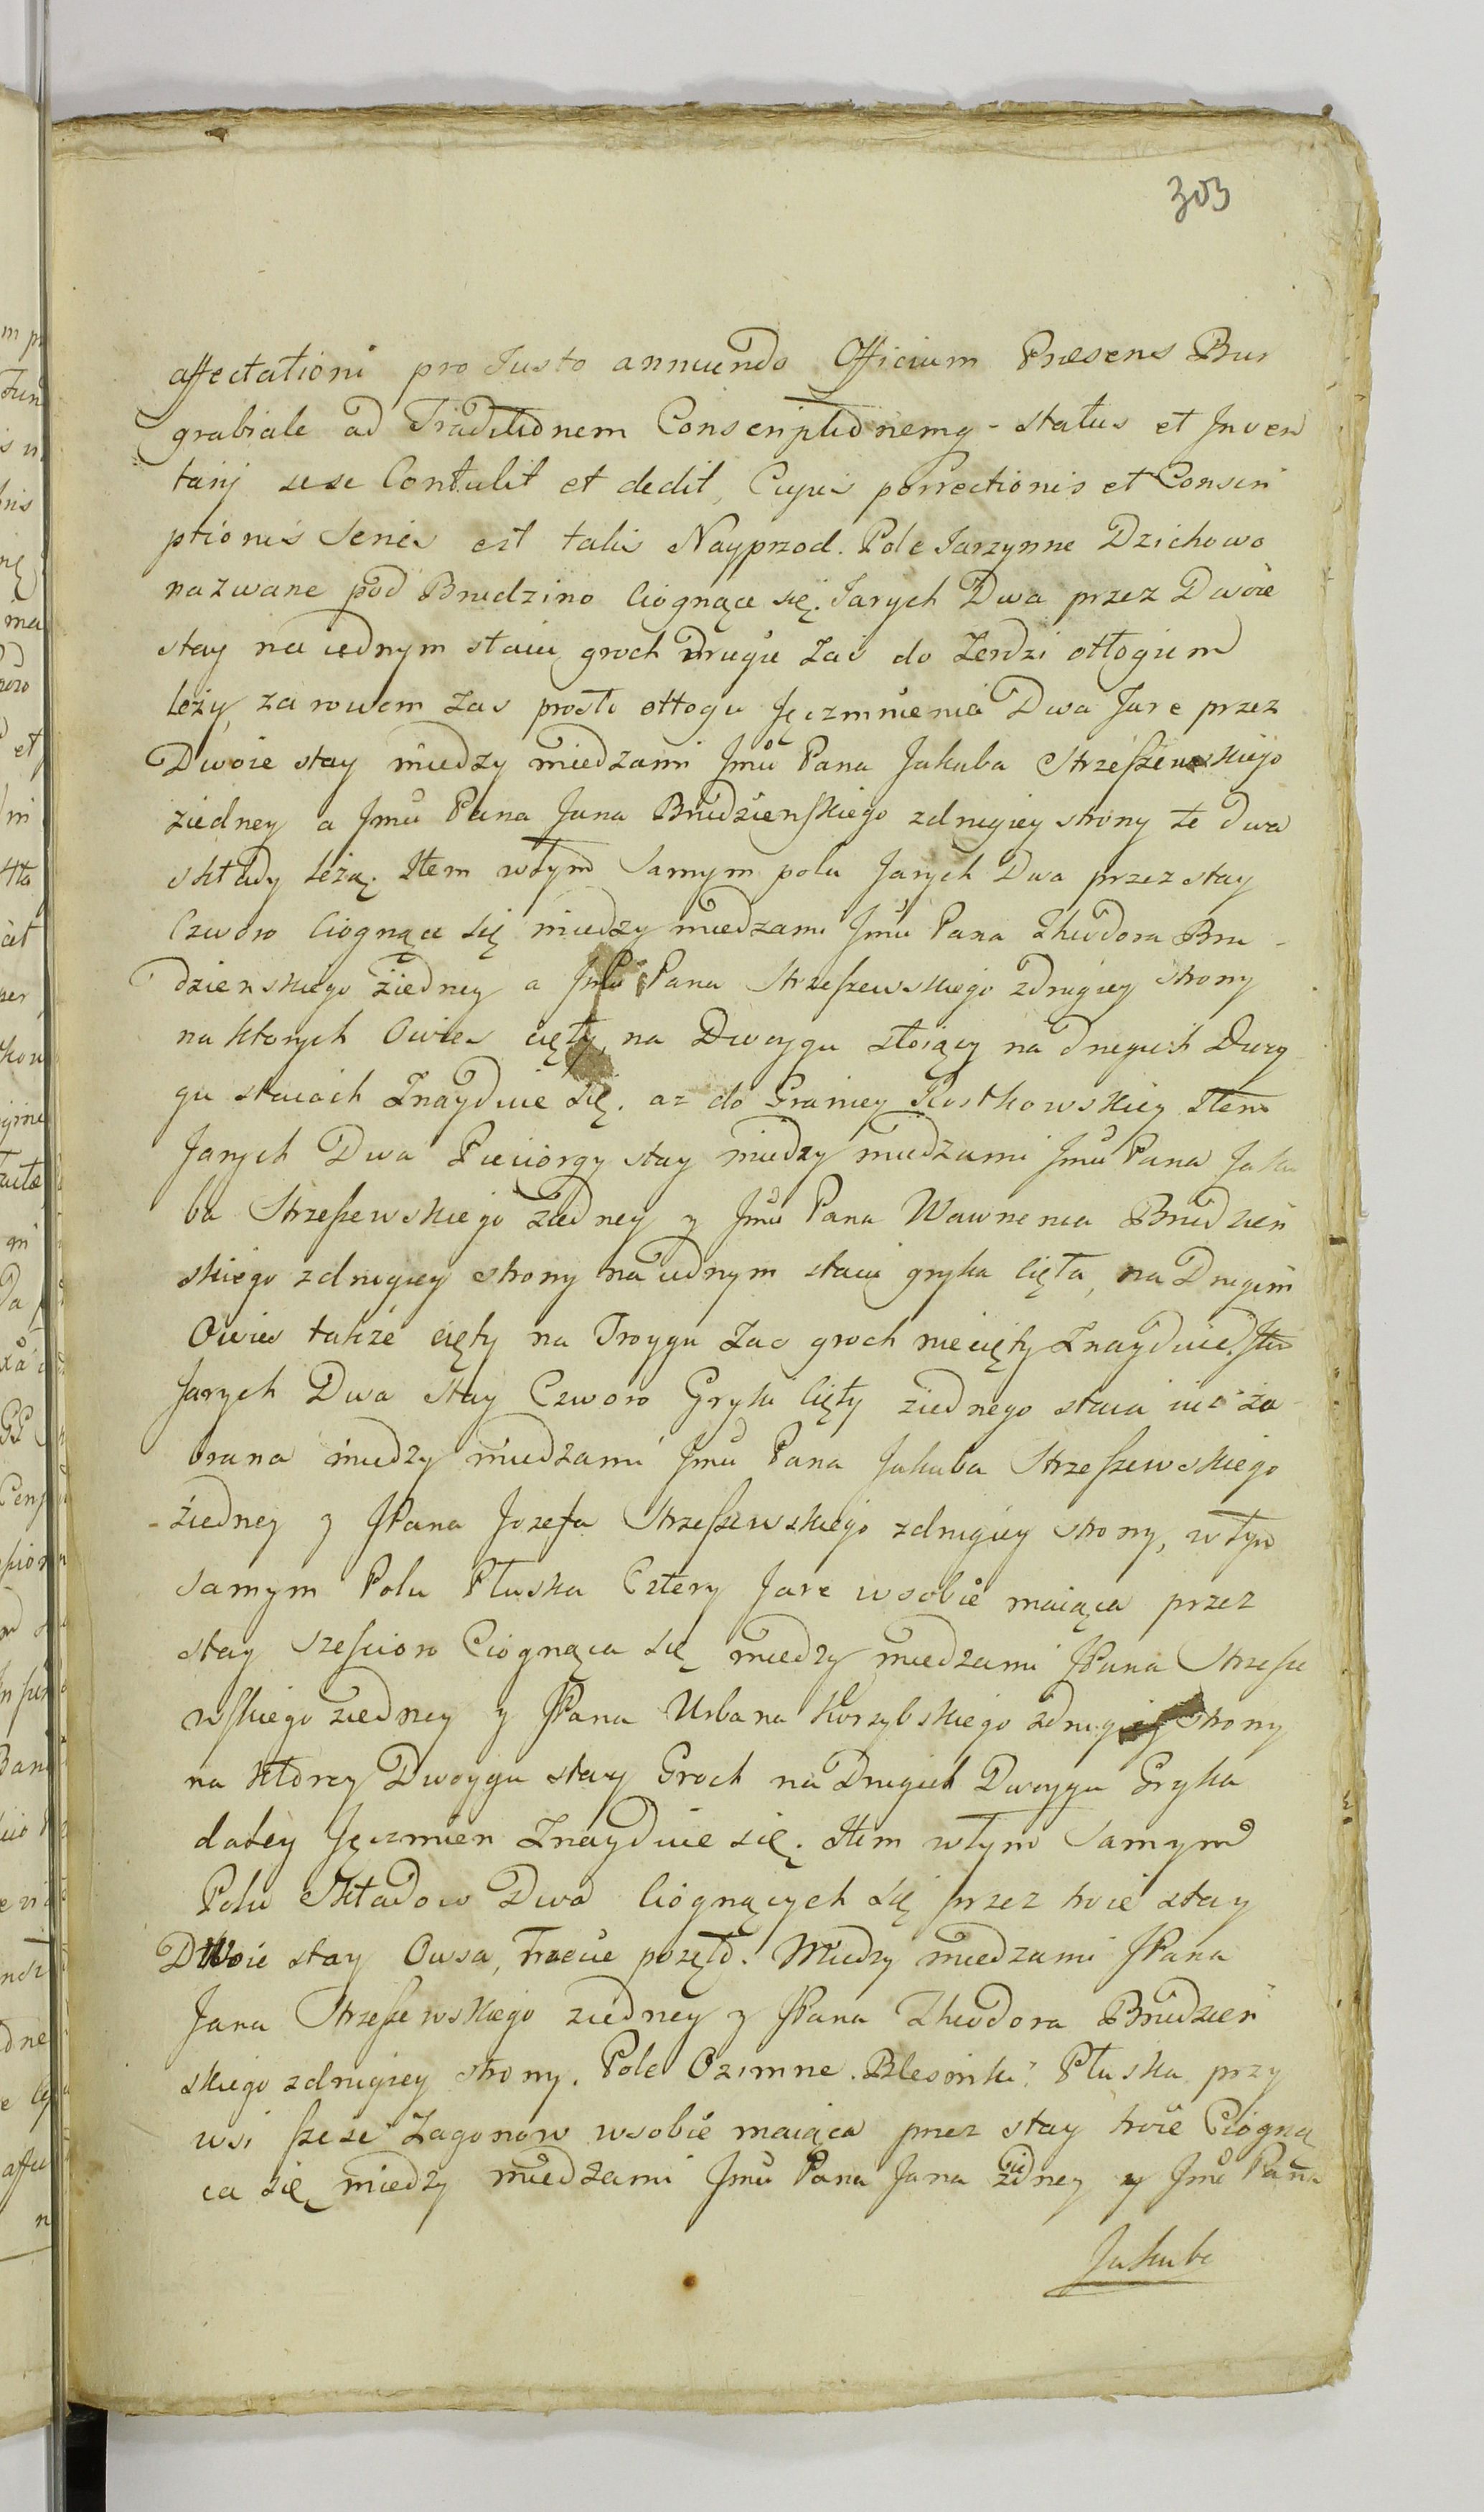 303
affectationi pro Justo annuendo Officium Præsens Bur
grabiale ad Traditionem Conscriptionemq- status et Inven
tarij sese Contulit et dedit, Cujus porrectionis et Conscri
ptionis Series est talis Nayprzod. Pole Jarzynne Dzichowo
nazwane pod Brudzino Ciognące się. Jarych Dwa przez Dwoie
stay na iednym staiu groch Drugie Zas do Zerdzi otłogiem
leży, za rowem Zas prosto ottogu Jęczmnienia Dwa Jare przez
Dwoie stay miedzy miedzami Jmu Pana Jakuba Strzeszewskiego
ziedney a Jmu Pana Jana Brudzienskiego zdrugiey strony te dwa
składy leżą. Item wtym Samym polu Jarych Dwa przez stay
Czworo Ciognące się miedzy miedzami Jmu Pana Theodora Bru-
dzienskiego ziedney a Jmu Pana Strzeszewskiego zdrugiey strony
na ktorych Owies cięty, na Dwoygu stoiący na drugich Dwoy
gu staiach Znayduie się. az do Graniey Rostkowskiey Item
Jarych Dwa Pieciorgy stay miedzy miedzami Jmu Pana Jaku
ba Strzeszewskiego ziedney y Jmu Pana Wawrzenca Brudzien
skiego zdrugiey strony na iednym staiu gryka cięta, na Drugim
Owies także cięty na Troygu Zas groch niecięty Znayduie Item
Jarych Dwa stay Czworo Gryki Cięty ziednego staia iuż za
brana miedzy miedzami Jmu Pana Jakuba Strzeszewskiego
-ziedney y JPana Jozefa Strzeszewskiego zdrugiey strony, wtym
Samym Polu Płuska Cztery Jare wsobie maiąca przez
stay szescioro Ciognąca się miedzy miedzami JPana Strzesze
wskiego ziedney y JPana Urbana Korzybskiego zdrugiey strony
na ktorey Dwoygu stay Groch na Drugich Dwoygu Gryka
daley Jęczmien Znayduie się. Item wtym Samym
Polu Składow Dwa Ciognących się przez troie stay
Dwoie stay Owsa, Trzecie pożęto. Miedzy miedzami JPana
Jana Strzeszewskiego ziedney y JPana Theodora Brudzien
skiego zdrugiey strony. Pole Ozimne. Blesinki: Płuska przy
wsi szesc Zagonow wsobie maiąca przez stay troie Ciogną
ca się miedzy miedzami Jmu Pana Jana ziedney y Jmu Pana
Jakuba